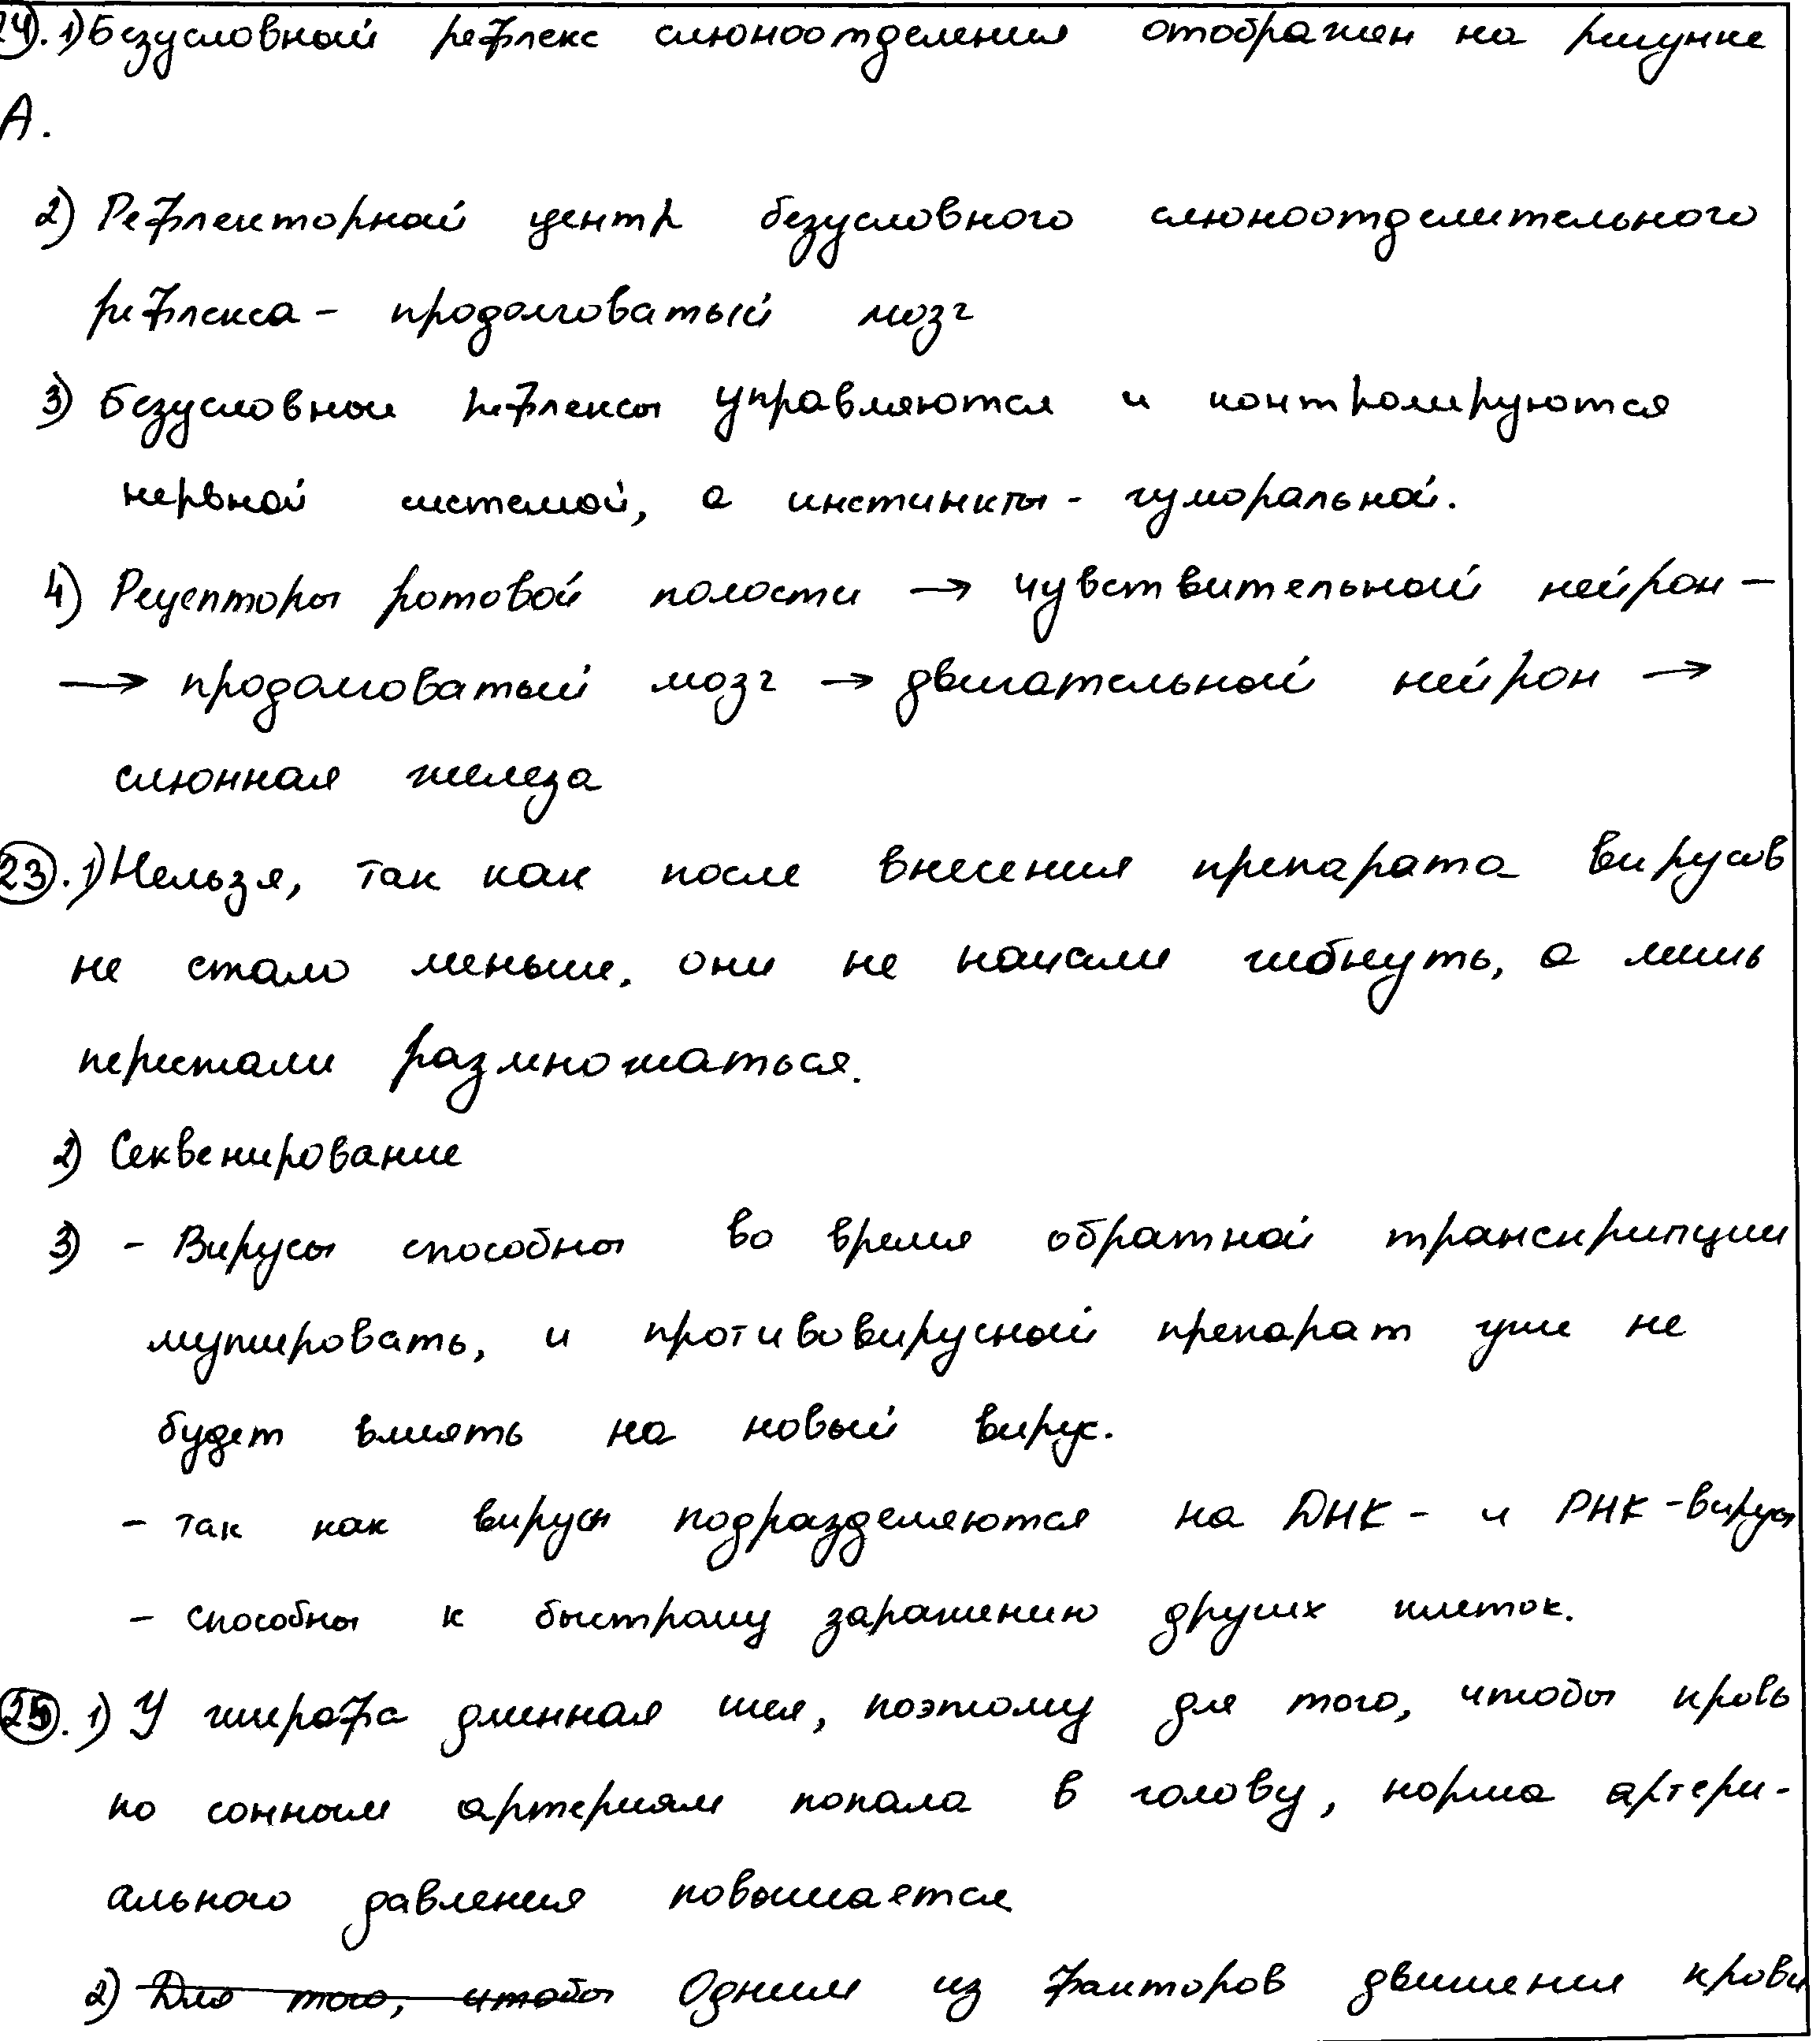 24. 1) Безусловный рефлекс слюноотделения отображен на рисунке
А.
2) Рефлекторный центр безусловного слюноотделительного
рефлекса - продолговатый мозг
3) Безусловные рефлексы управляются и контролируются
нервной системой, а инстинкты - гуморальной.
4) Рецепторы ротовой полости → чувствительный нейрон –
→ продолговатый мозг → двигательный нейрон →
слюнная железа
23. 1) Нельзя, так как после внесения препарата вирусов
не стало меньше, они не начали гибнуть, а лишь
перестали размножаться.
2) Секвенирование
3) - Вирусы способны во время обратной транскрипции
мутировать, и противовирусный препарат уже не
будет влиять на новый вирус.
- так как вирусы подразделяются на ДНК- и РНК-вирусы
- способны к быстрому заражению других клеток.
25. 1) У жирафа длинная шея, поэтому для того, чтобы кровь
по сонным артериям попала в голову, норма артери-
ального давления повышается
2) Для того, чтобы Одним из факторов движения крови